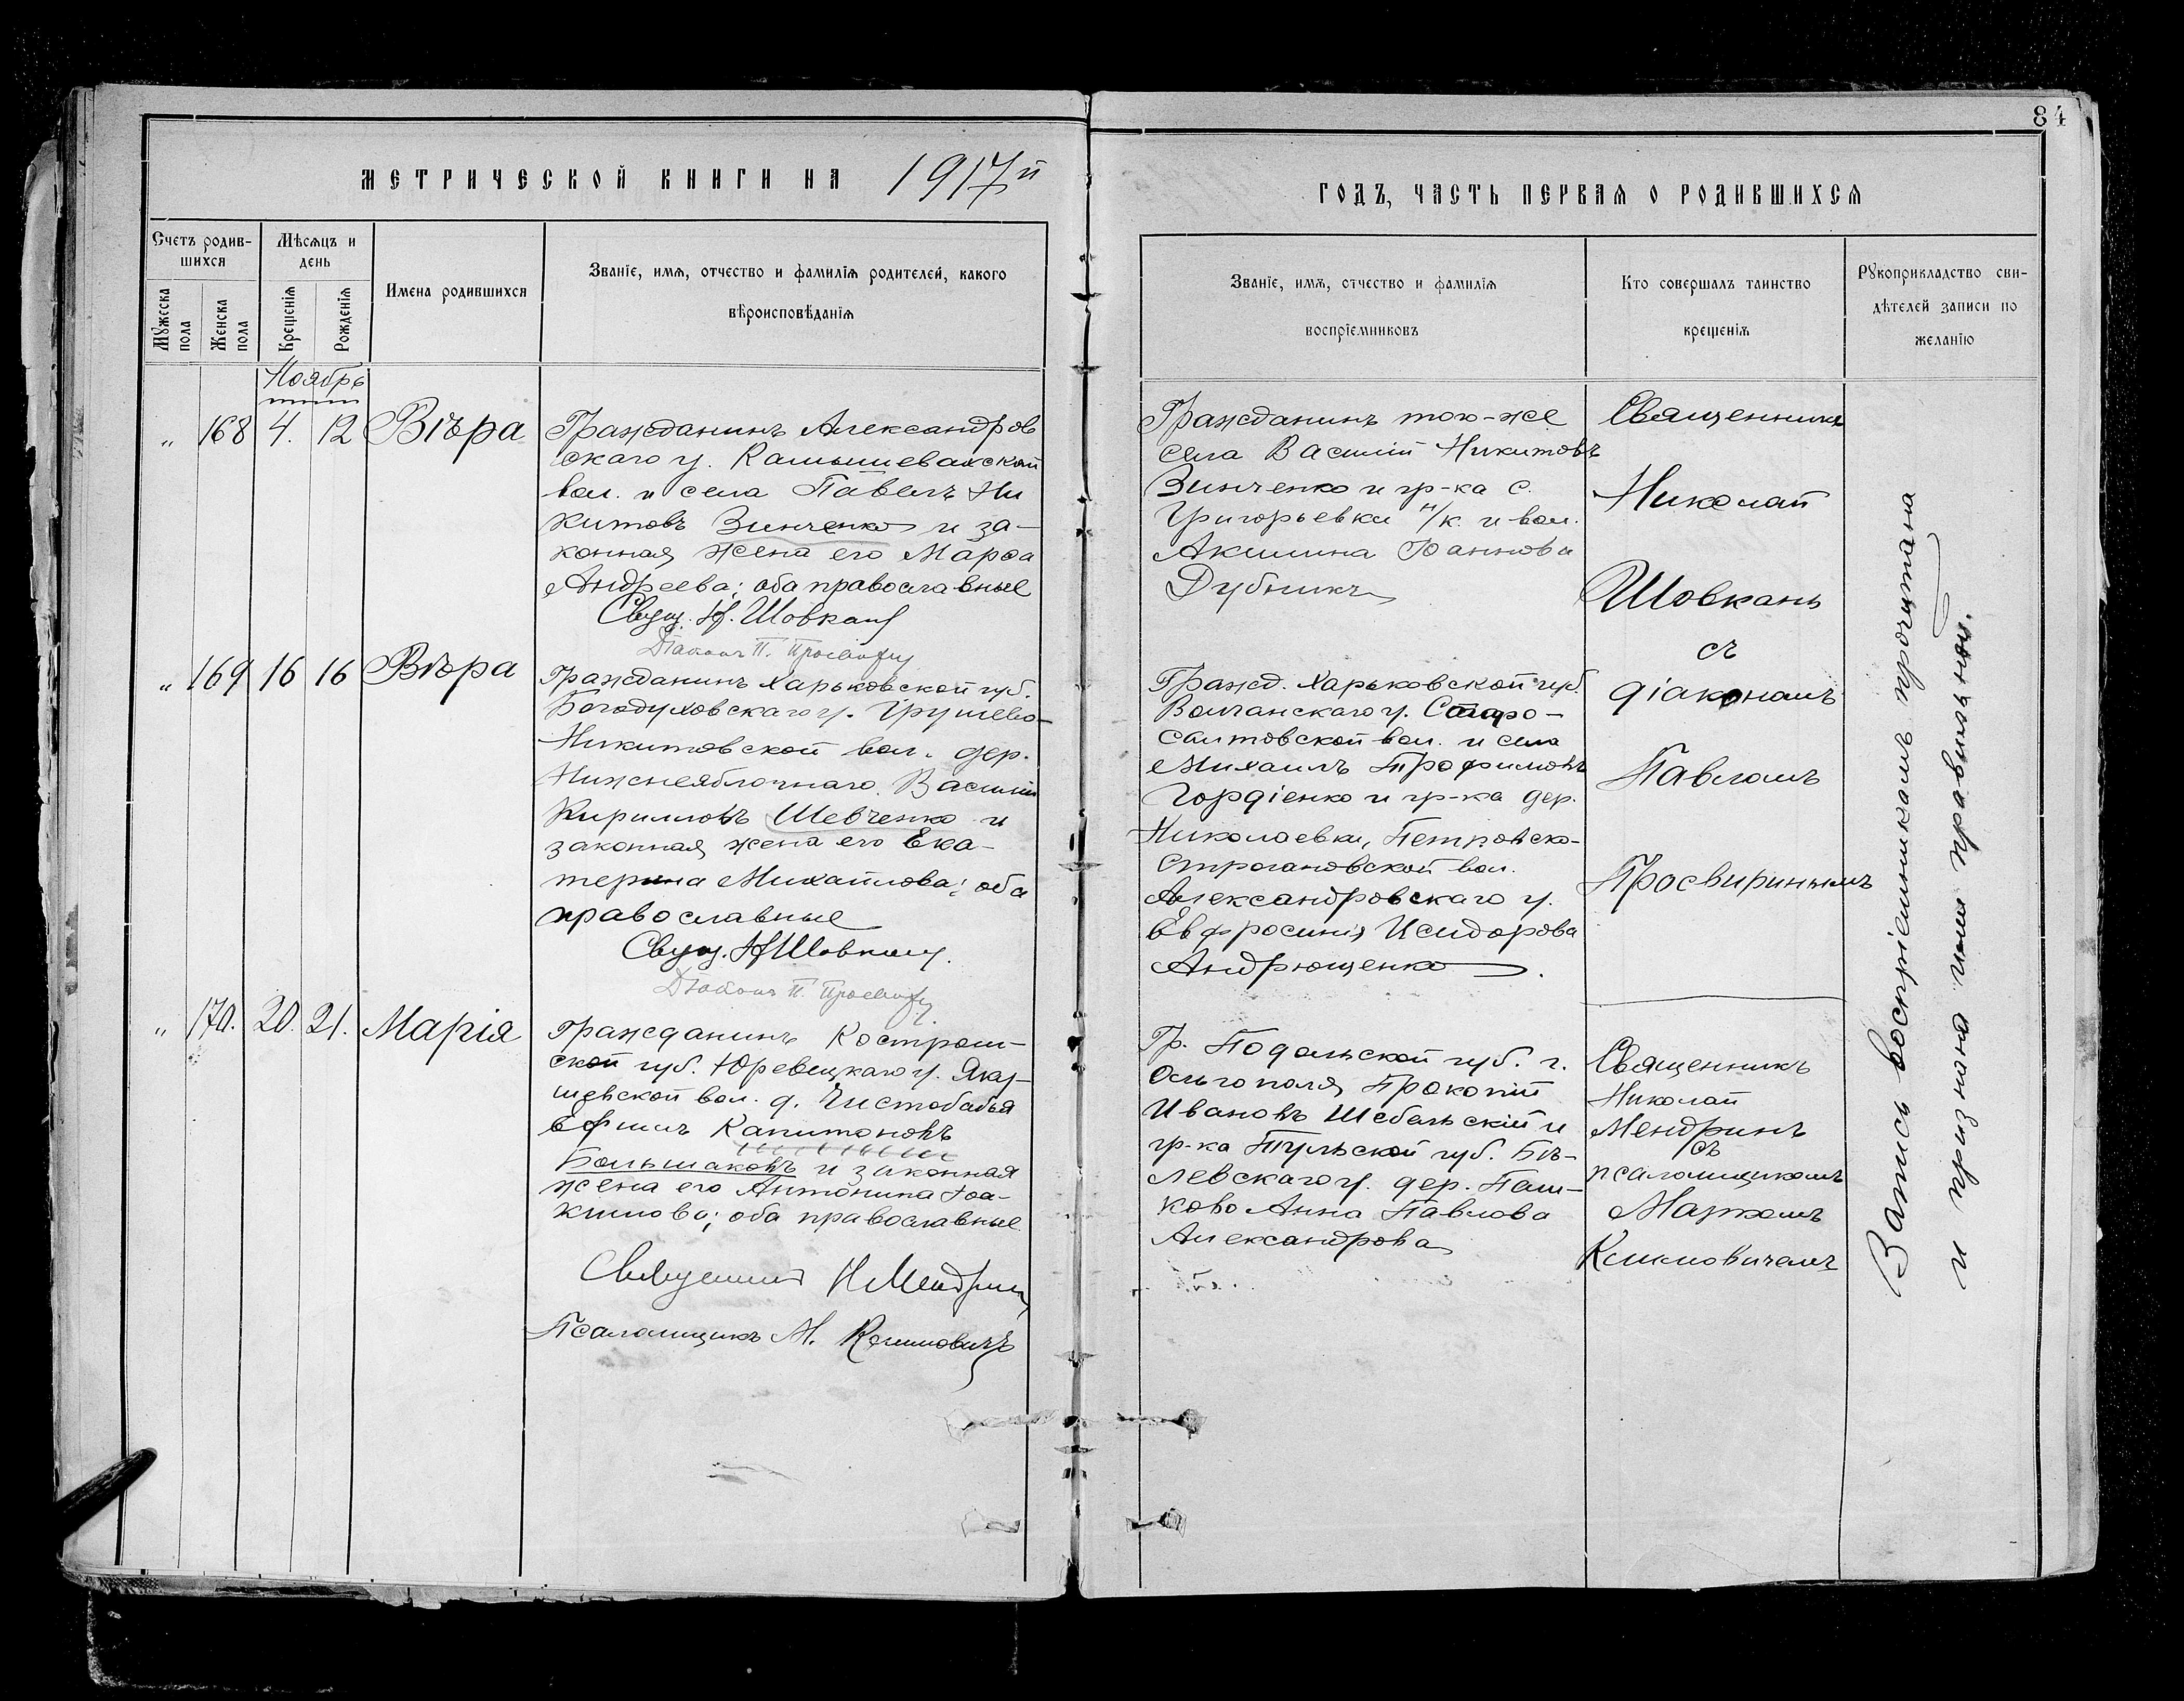 84
МЕТРИЧЕСКОЙ КНИГИ НА 1917й
Счетъ родив-
шихся
Мужеска
пола
Женска
пола
Мѣсяцъ и
день
Крещенія
Рожденія
Имена родившихся
Званіе, имя, отчество и фамилія родителей, какого
вѣроисповѣданія
Ноябрь
„ 168 4. 12 Вѣра
Гражданинъ Александров
скаго у. Камышевахской
вол. и села Павелъ Ни
китовъ Зинченко и за-
конная жена его Марѳа
Андреева; оба православные
Свящ. Н. Шовкань
Діаконъ П.
„ 169 16 16 Вѣра
Гражданинъ Харьковской губ.
Богодуховскаго у. Грушево-
Никитовской вол. дер.
Нижнеяблочнаго Василій
Кирилловъ Шевченко и
законная жена его Ека-
терина Михайлова; оба
православные
Свящ. Н Шовкань
Діаконъ П.
„ 170. 20. 21. Марія
Гражданинъ Костром-
ской губ. Юревецкаго у. Яку-
шевской вол. д. Чистобабья
Ефимъ Капитоновъ
Большаковъ и законная
жена его Антонина Іоа-
кимова; оба православные
Священникъ Н Мендринъ
Псаломщикъ М. Климовичъ
ГОДЪ, ЧАСТЬ ПЕРВАЯ О РОДИВШИХСЯ
Званіе, имя, отчество и фамилія
воспріемниковъ
Кто совершалъ таинство
крещенія
Рукоприкладство сви-
дѣтелей записи по
желанію
Гражданинъ того-же
села Василій Никитовъ
Зинченко и гр-ка с.
Григорьевки и вол.
Акилина Іоаннова
Дубникъ
Гражд. Харьковской губ.
Волчанскаго у. Старо-
салтовской вол. и села
Михаилъ Трофимовъ
Гордіенко и гр-ка дер.
Николаевки, Петровско-
Строгановской вол.
Александровскаго у.
Евфросинія Исидорова
Андрющенко
Гр. Подольской губ. г.
Ольгополя Прокопій
Ивановъ Шебельскій и
гр-ка Тульской губ. Бѣ-
левскаго у. дер. Паш-
ково Анна Павлова
Александрова
Священникъ
Николай
Шовкань
съ
діакономъ
Павломъ
Просвиринымъ
Священникъ
Николай
Мендринъ
съ
псаломщикомъ
Маркомъ
Климовичемъ
Запись воспріемникамъ прочитана
и признана ими правильной.